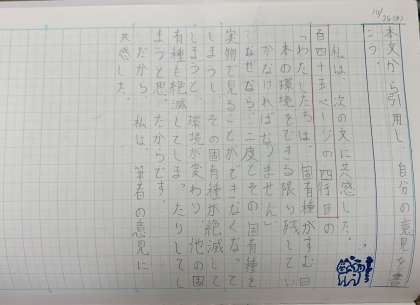 10/26(木)
本文から引用し、自分の意見を書
こう。
私は、次の文に共感した。
百四十五ページの四行目の
「わたしたちは、固有種がすむ日
本の環境をできる限り残してい
かなければなりません」
なぜなら、二度とその固有種を
実物で見ることができなくなって
しまうし、その固有種が絶滅して
しまうと、環境が変わり、他の固
有種も絶滅してしまったりしてし
まうと思ったからです。
だから、私は、筆者の意見に
共感した。